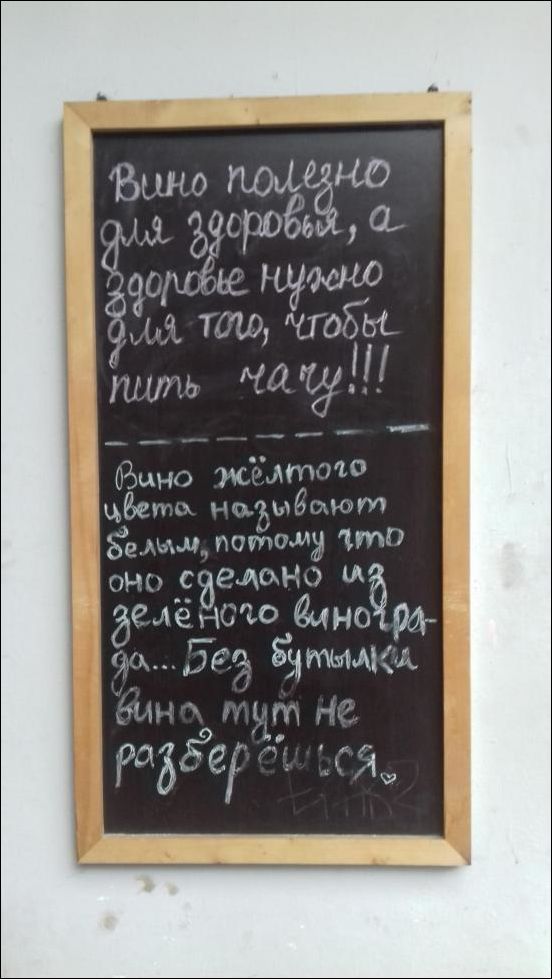 Вино полезно
для здоровья, а
здоровье нужно
для того, чтобы
пить чачу!!!
Вино жёлтого
цвета называют
белым, потому что
оно сделано из
зелёного виногра-
да... Без бутылки
вина тут не
разберёшься.